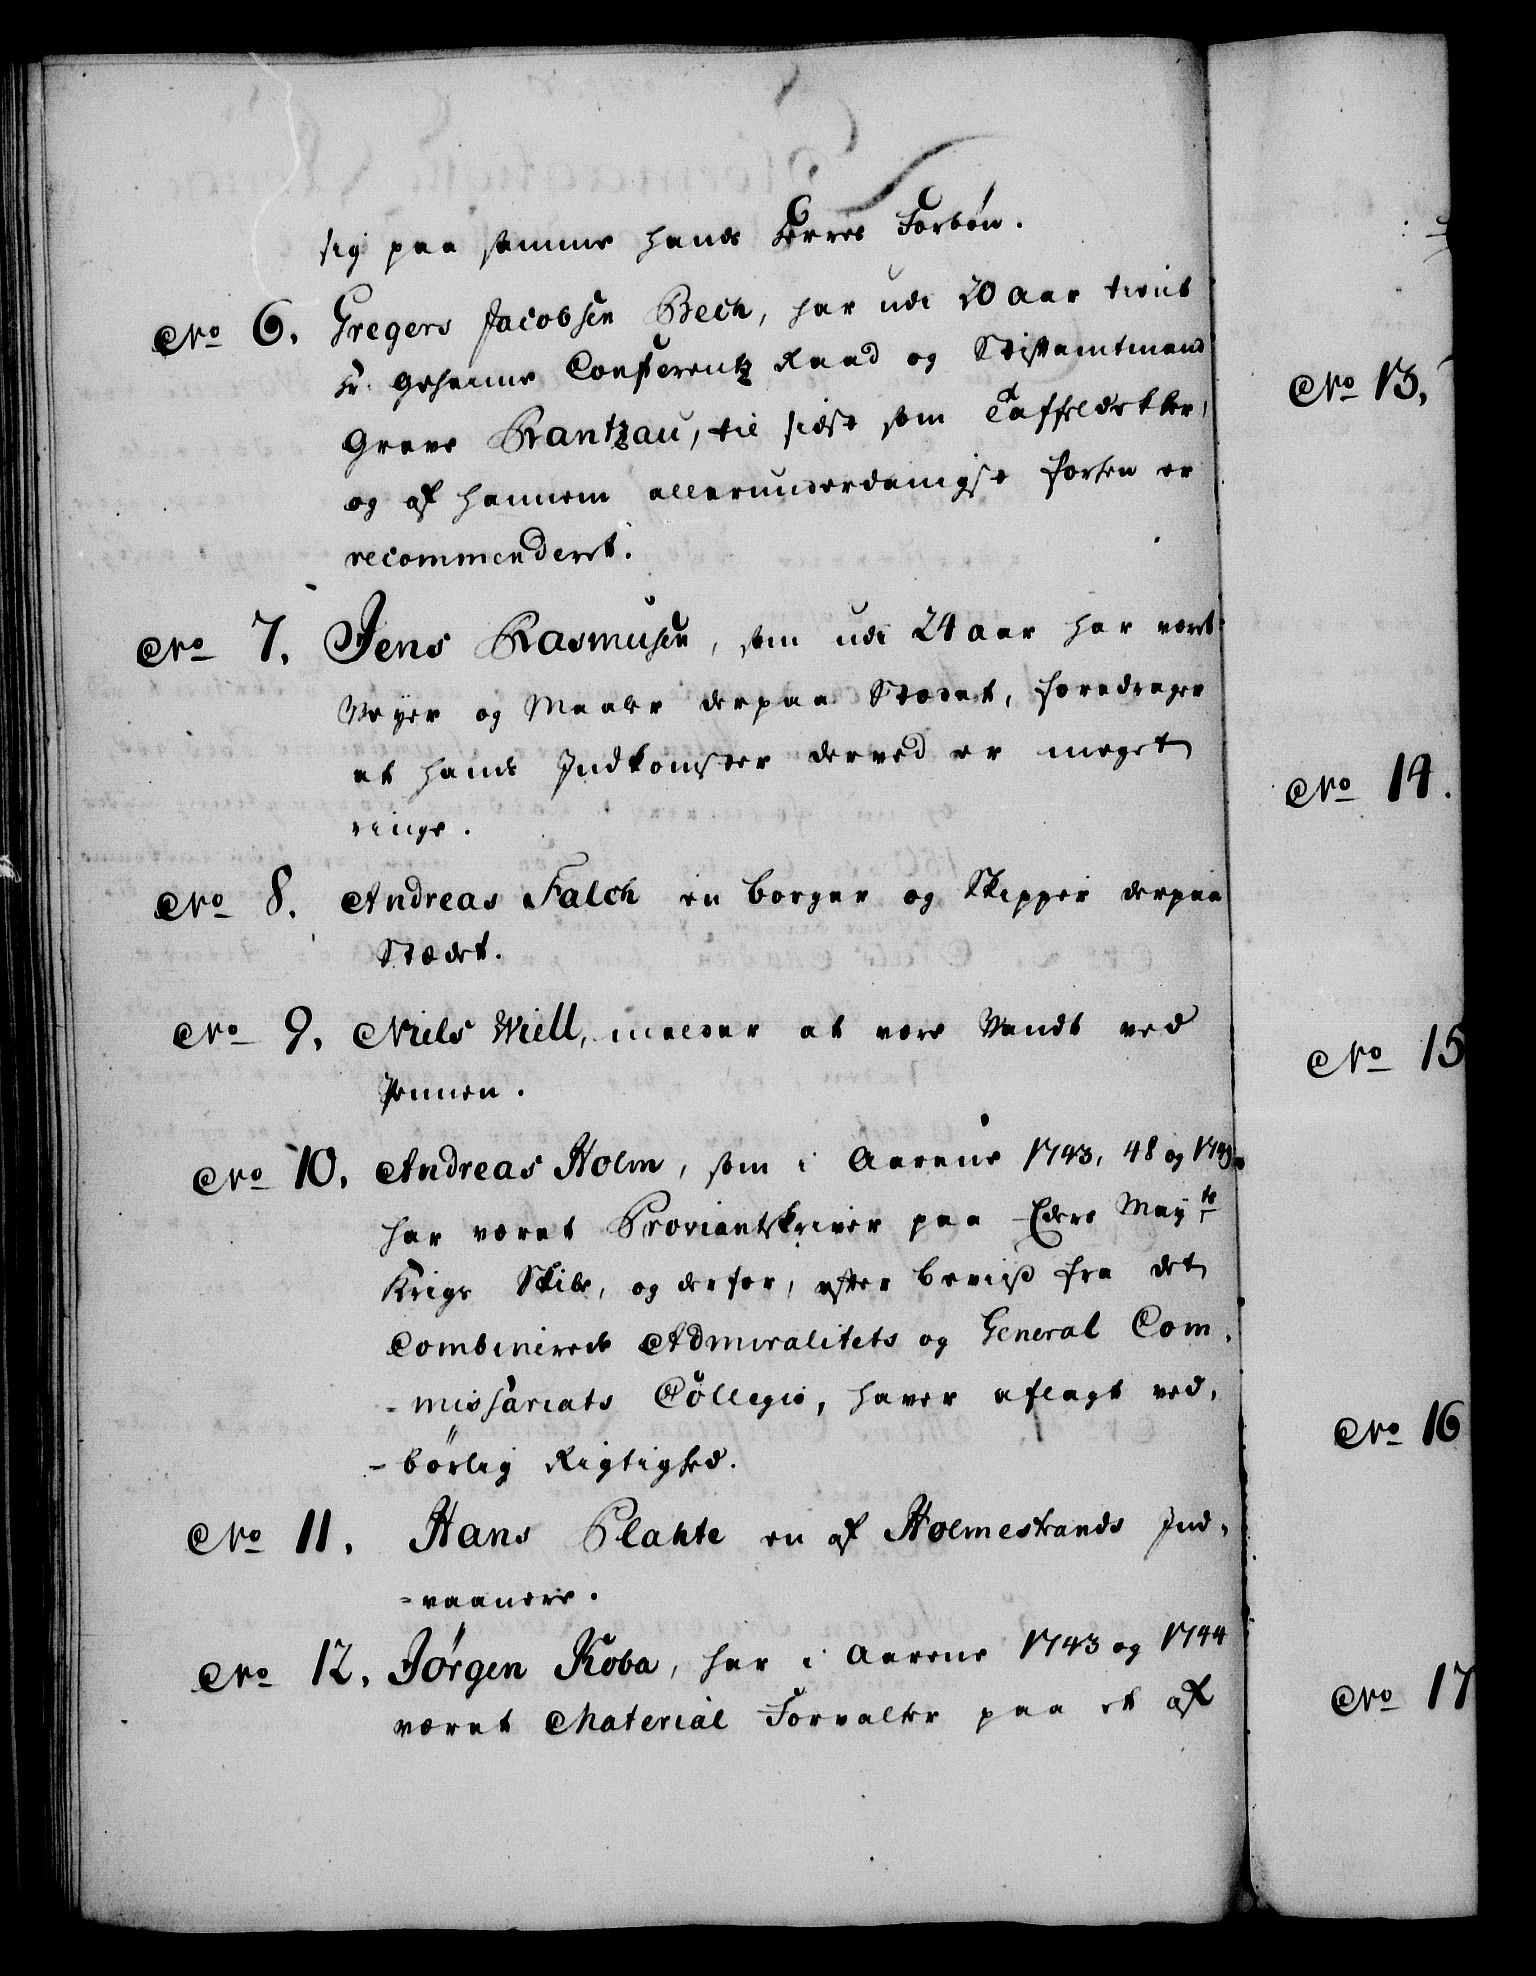 sig paa samme hands Herres Forbøn.
No 6. Gregers Jacobsen Bech, har udi 20 aar tient
Hr. Geheime Conferentz Raad og Stiftamtmand
Greve Rantzau, til sidst som Taffeldekker,
og af hannem allerunderdanigst forhen er
recommenderet.
No 7. Jens Rasmusen, som udi 24 aar har været
Veyer og Maaler derpaa Stædet, foredrager
at hands Indkomster derved er meget
ringe.
No 8. Andreas Falch en borger og Skipper derpaa
Stædet.
No 9. Niels Wiell, melder at være Vandt ved
Pennen.
No 10. Andreas Holm, som i Aarene 1743, 48 og 1749
har været Proviantskriver paa Eders May^ts
Krigs Skibe, og derfor, efter beviiß fra det
Combinerede Admiralitets og General Com-
-missariats Collegio, haver aflagt ved-
-börlig Rigtighed.
No 11. Hans Plahte en af Holmestrands Ind-
-vaanere.
No 12. Jørgen Koba, har i Aarene 1743 og 1744
været Material Forvalter paa et af
No 13.
No 14.
No 15
No 16
No 17